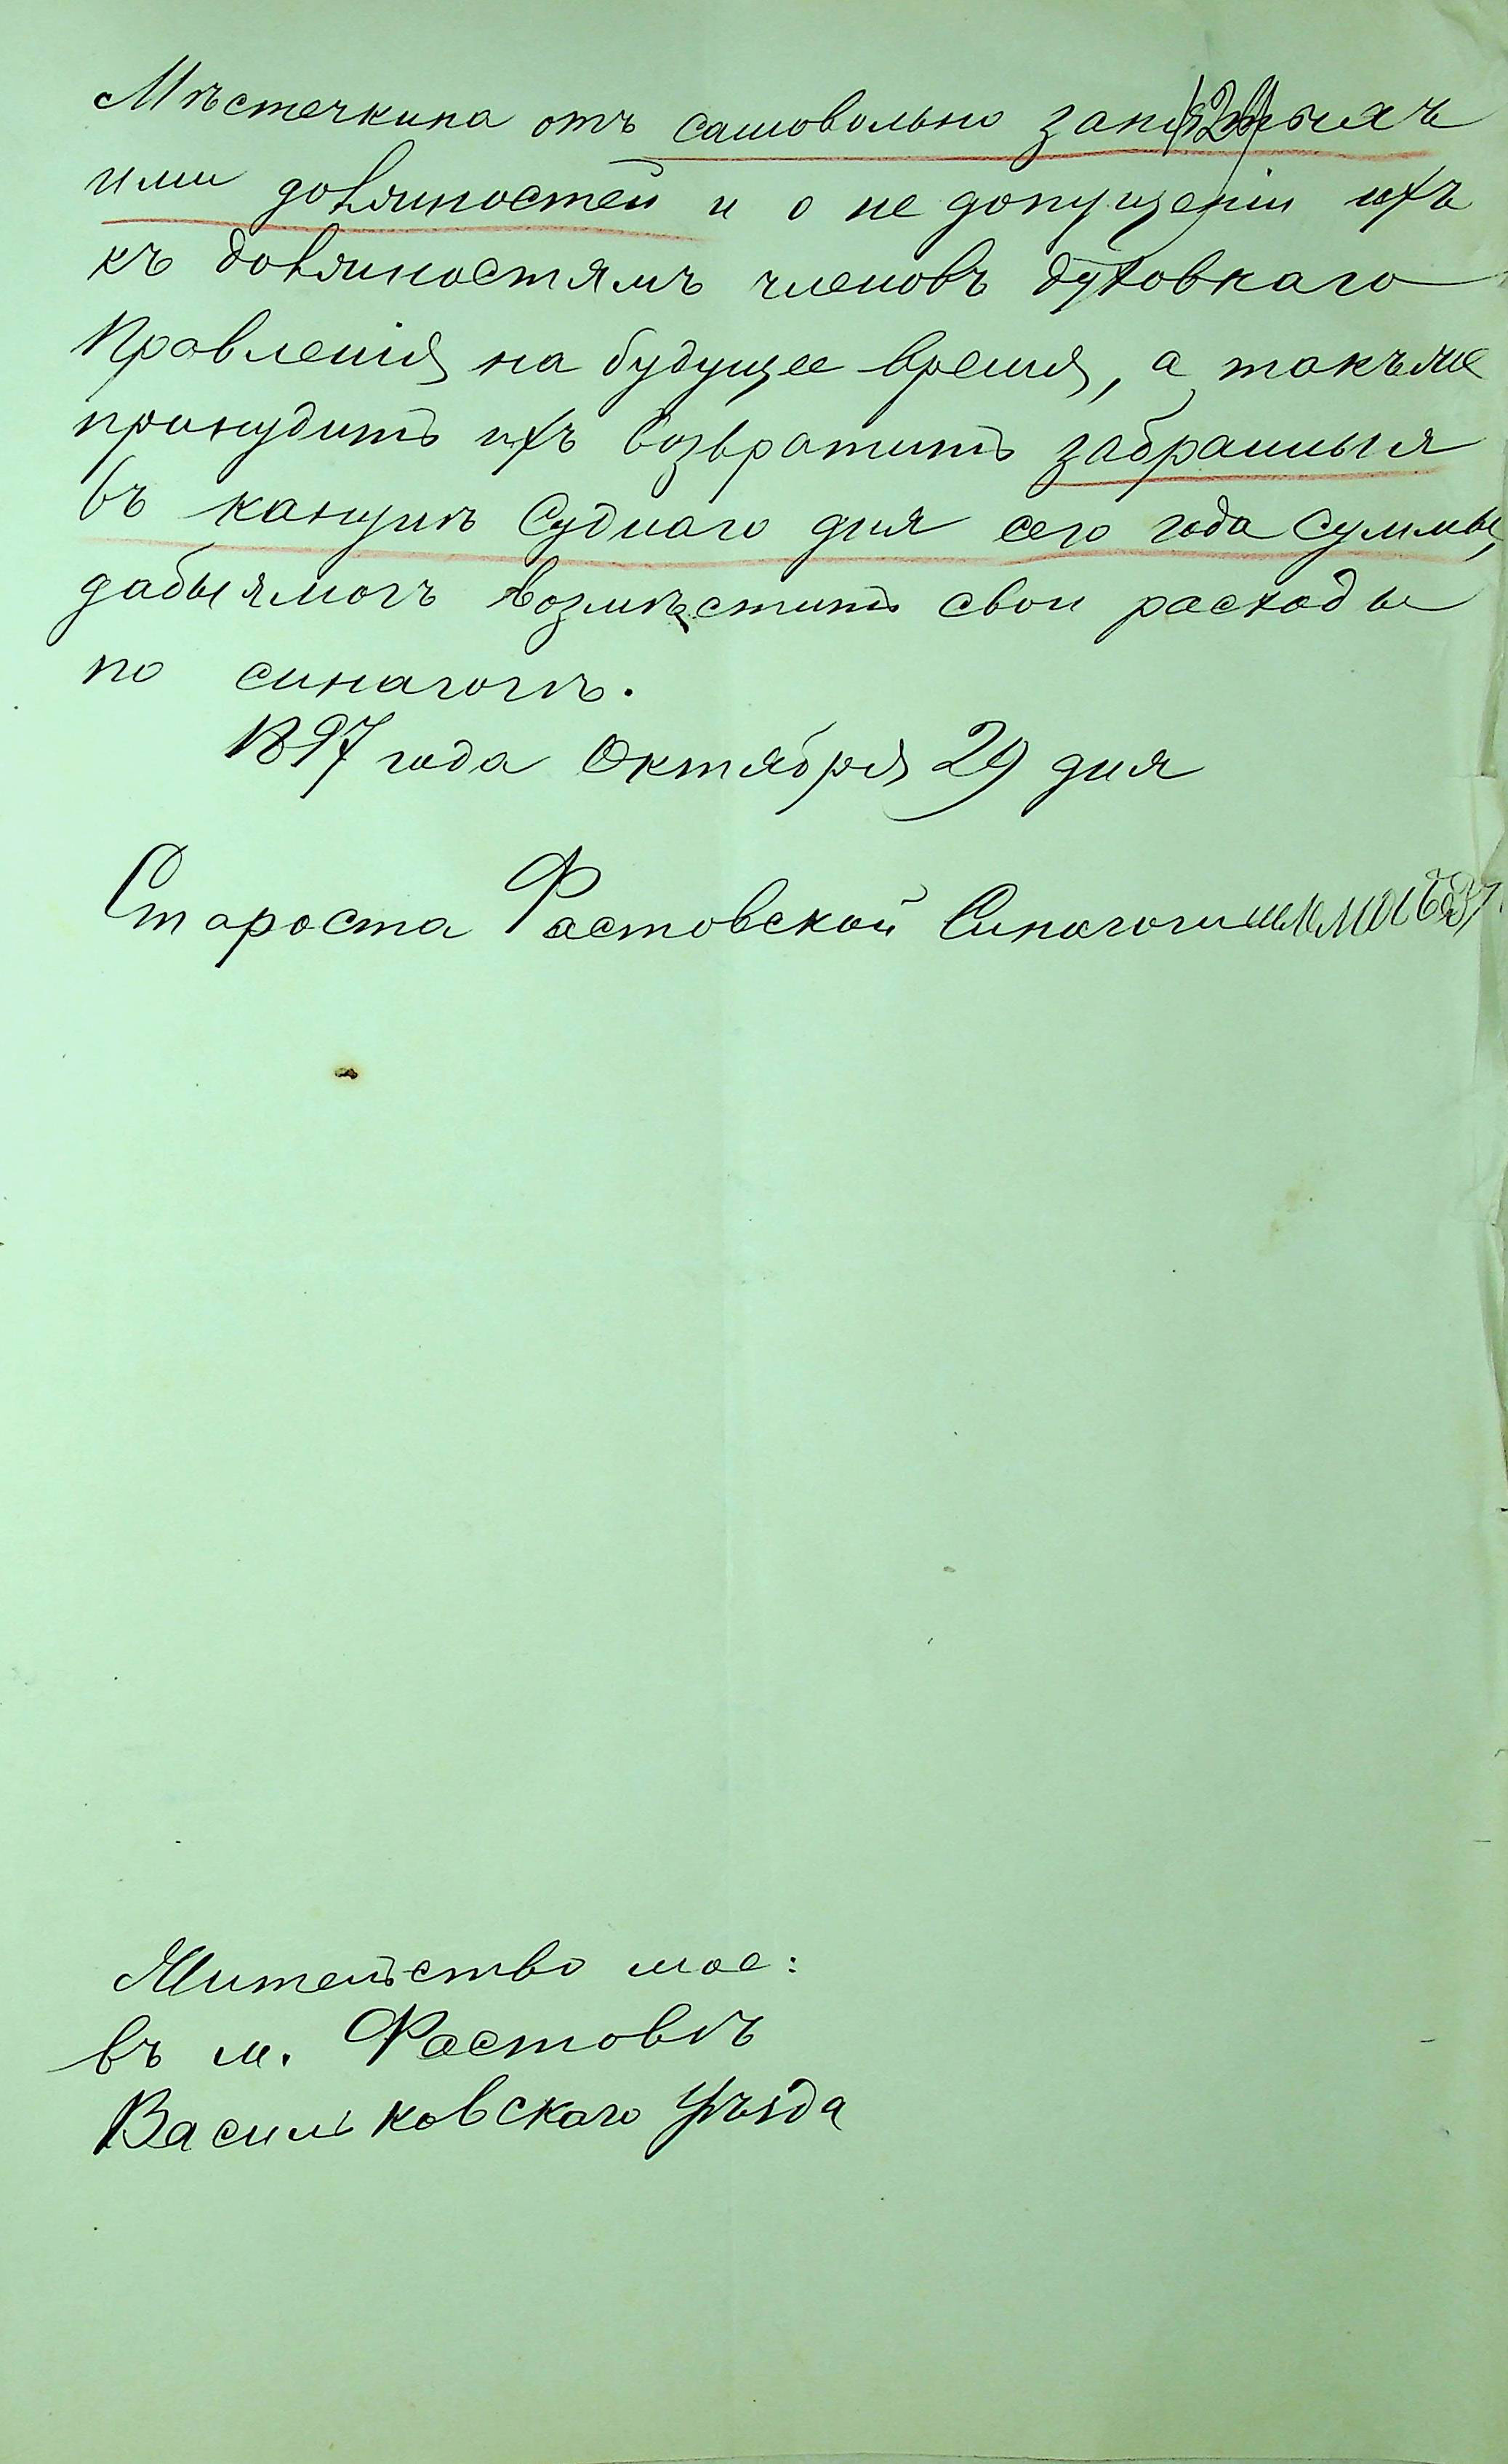 Мѣстечкина отъ самовольно занятыхъ
ими должностей и о не допущеніи ихъ
къ должностямъ членовъ духовнаго
Правленія на будущее время, а такъже
принудить ихъ возвратить забранныя
въ канунъ Суднаго дня сего года суммы,
дабы я могъ возмѣстить свои расходы
по синагогѣ.
1897 года Октября 29 дня
Староста Фастовской Синагоги
Жительство мое:
въ м. Фастовѣ
Васильковскаго уѣзда